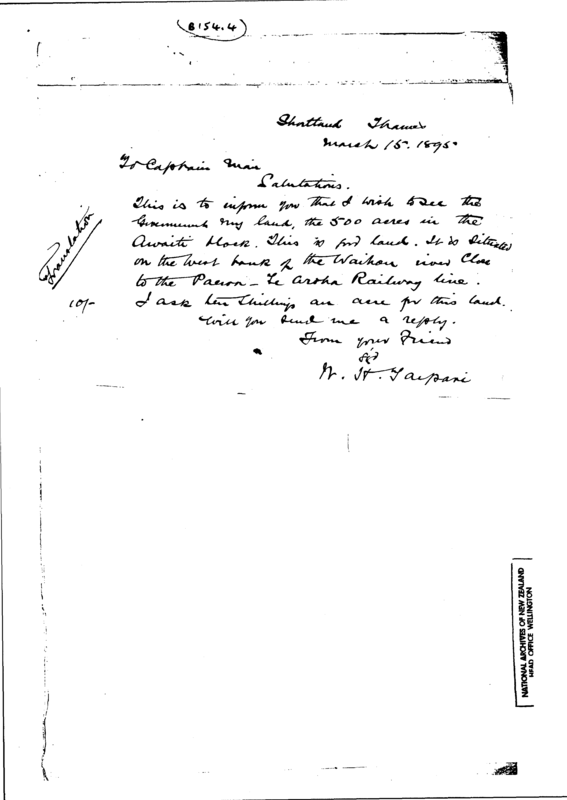 B154.4
Shortland Thames
March 15. 1895.
To Captain Mair
Salutations.
This is to inform you that I wish to see the
Government my land, the 500 acres in the
Awaiti block. This is good land. It is situated
on the West bank of the Waihou river close
to the Paeroa - Te Aroha Railway line.
I ask ten shillings an acre for this land.
Will you send me a reply.
From your Friend
sgd
W. H. Taipari
Translation
10/-
NATIONAL ARCHIVES OF NEW ZEALAND
HEAD OFFICE WELLINGTON